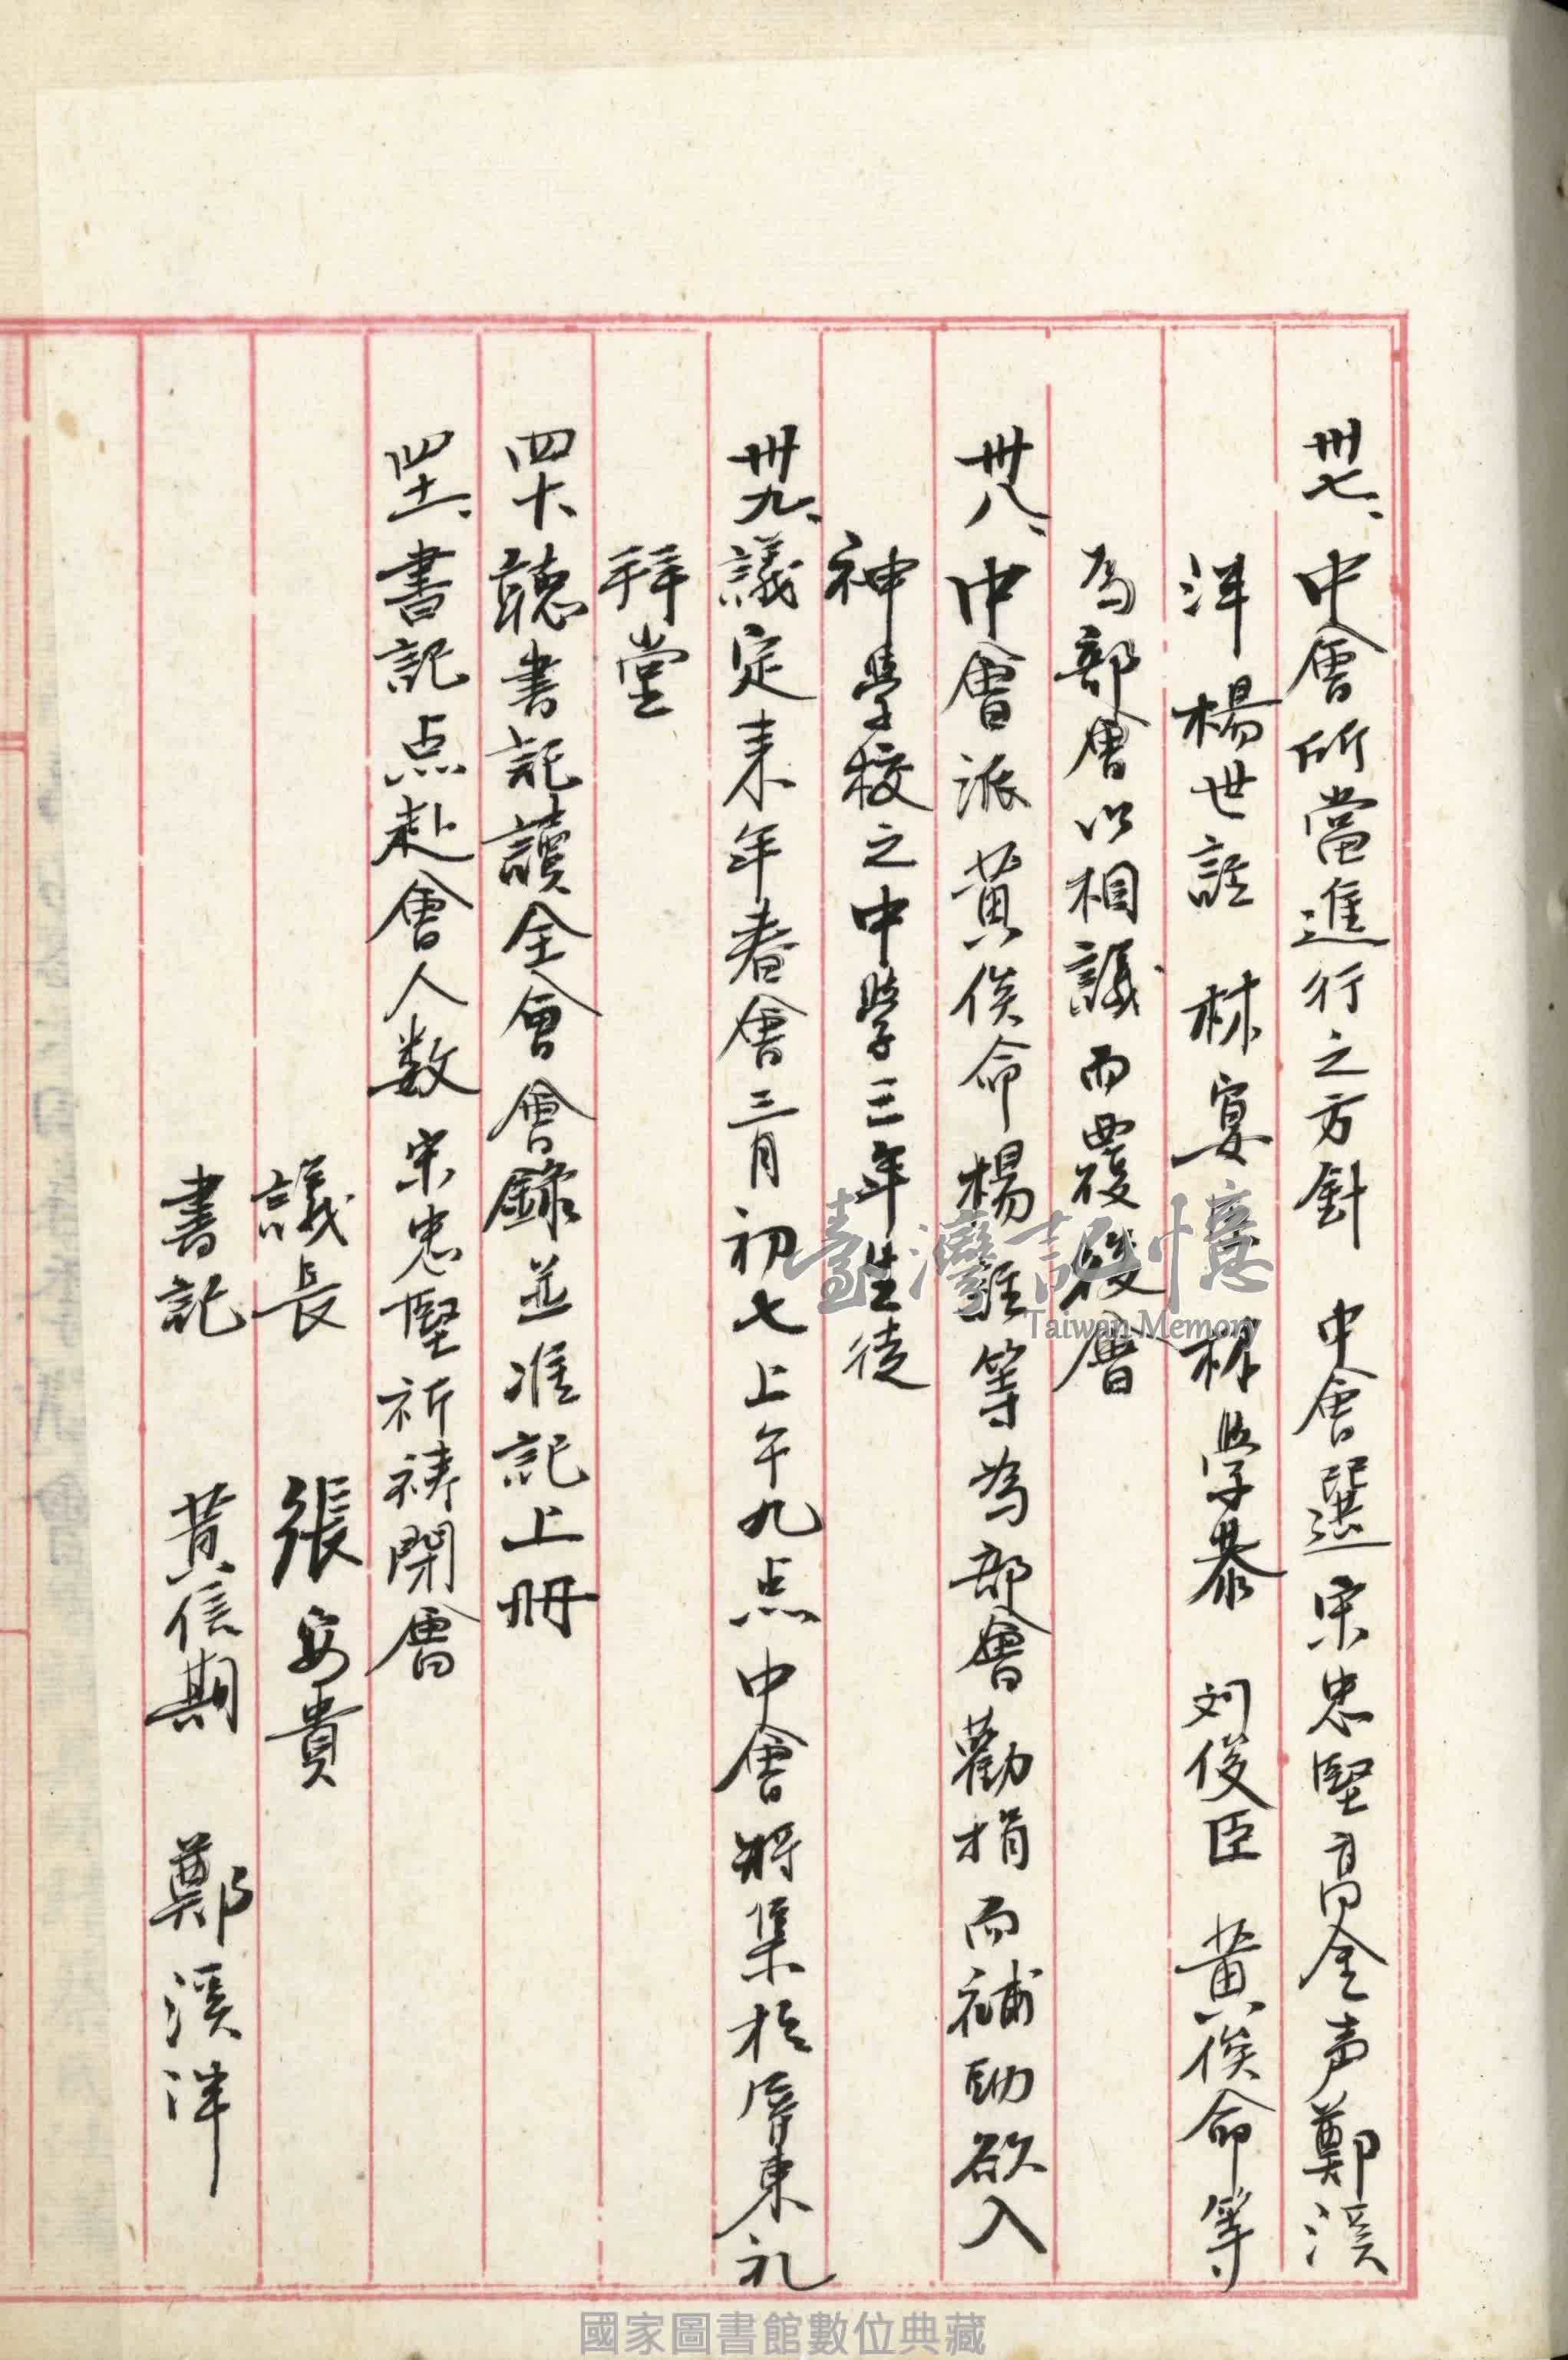 卅七、中會所當進行之方針　中會選宋忠堅高金声鄭溪
泮　楊世註　林宴　林學恭　刘俊臣　黃俟命等
為部會以相議而覆後會
卅八、中會派黃俟命楊註等為部會勸捐而補助欲入
神學校之中學三年生徒
卅九、議定来年春會三月初七上午九点中會將集於屏東礼
拜堂
四十、聽書記讀全會會錄並准記上冊
四十一、書記点赴會人数宋忠堅祈禱閉會
議長　張安貴
書記　黃信期　鄭溪泮
臺灣記憶
Taiwan Memory
國家圖書館數位典藏